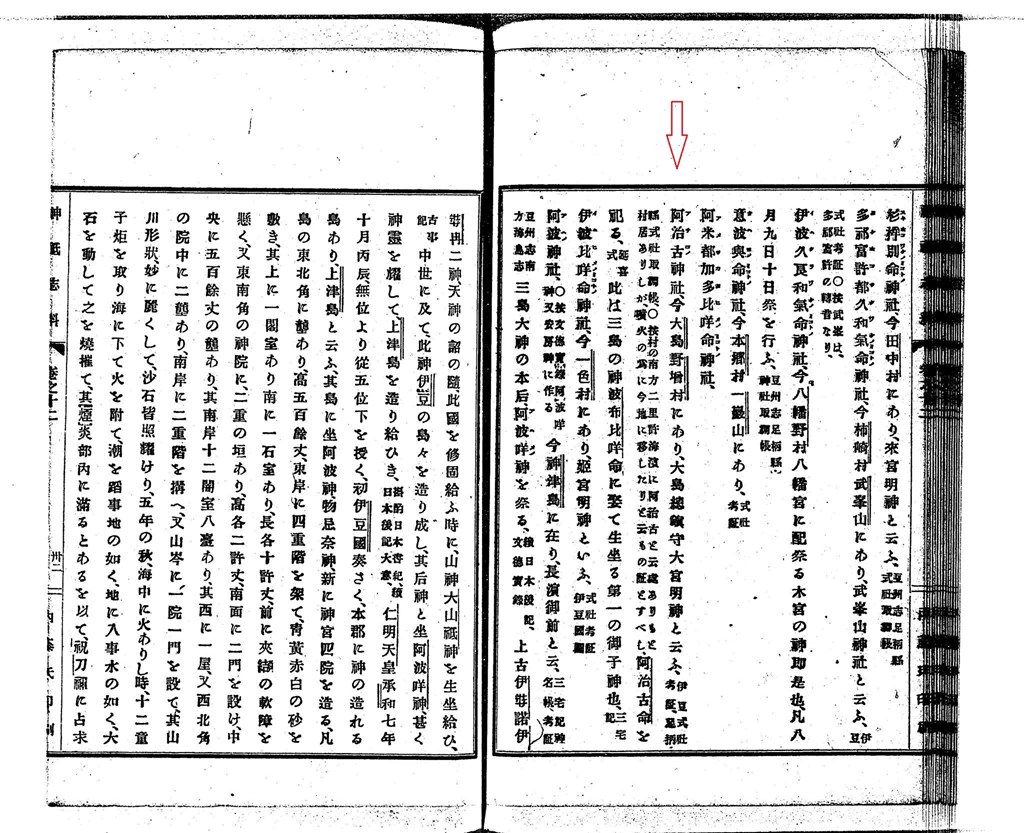 杉桙別命神社、今田中村にあり、來宮明神と云ふ、豆州志足柄縣式社取調帳
多祁富許都久和氣命神社、今柿崎村武峯山にあり、武峯山神社と云ふ、伊豆
式社考証〇按武峯は、多祁富許の轉音なり、
伊波久良和氣命神社今八幡野村八幡宮に配祭る木宮の神即是也、凡八
月九日十日祭を行ふ、豆州志足柄縣神社取調帳
意波與命神社、今本鄕村一嚴山にあり、式社考証
阿米都加多比咩命神社、
阿治古神社、今大島野增村にあり、大島總鎭守大宮明神と云ふ、伊豆式社考証足柄
縣式社取調帳〇按村の南方二里許海濱に阿治古と云處ありもと村居ありしが、噴火の爲に今地に移したりと云もの証とすべし、阿治古命を
祀る、延喜式此は三島の神波布比咩命に娶て生坐る第一の御子神也、三宅記
伊波比咩命神社、今一色村にあり、姬宮明神といふ、式社考証伊豆國圖
阿波神社、〇按文德實錄阿波咩神又安房神に作る今神津島に在り、長濱御前と云、三宅記神名帳、考証
豆州志南方海島志三島大神の本后、阿波咩神を祭る、續日本後記、文德實錄上古伊弉諾伊
弉冉二神天神の詔の隨、此國を修固給ふ時に、山神大山祗神を生坐給ひ、
古事記中世に及て、此神伊豆の島々を造り成し、其后神と坐阿波咩神、甚く
神靈を耀して、上津島を造り給ひき、釋日本書紀、續日本後記大意、仁明天皇承和七年
十月丙辰、無位より從五位下を授く、初伊豆國奏さく、本郡に神の造れる
島あり、上津島と云ふ、其島に坐阿波神、物忌奈神、新に神宮四院を造る、凡
島の東北角に壟あり、高五百餘丈、東岸に四重階を架て、靑黃赤白の砂を
敷き、其上に一閣室あり、南に一石室あり、長各十許丈、前に夾纈の軟障を
懸く、又東南角の神院に、二重の垣あり、高各二許丈、南面に二門を設け、中
央に五百餘丈の壟あり、其南岸十二閣室八臺あり、其西に一屋、又西北角
の院中に二壟あり、南岸に二重階を搆へ、又山岑に、一院一門を設て、其山
川形狀、妙に麗くして、沙石皆照耀けり、五年の秋、海中に火ありし時、十二童
子炬を取り海に下て火を附て、潮を蹈事地の如く、地に入事水の如く、大
石を動して之を燒摧て、其煙炎部內に滿るとあるを以て、視刀禰に占求
神祗志料
卷之十二
卄二